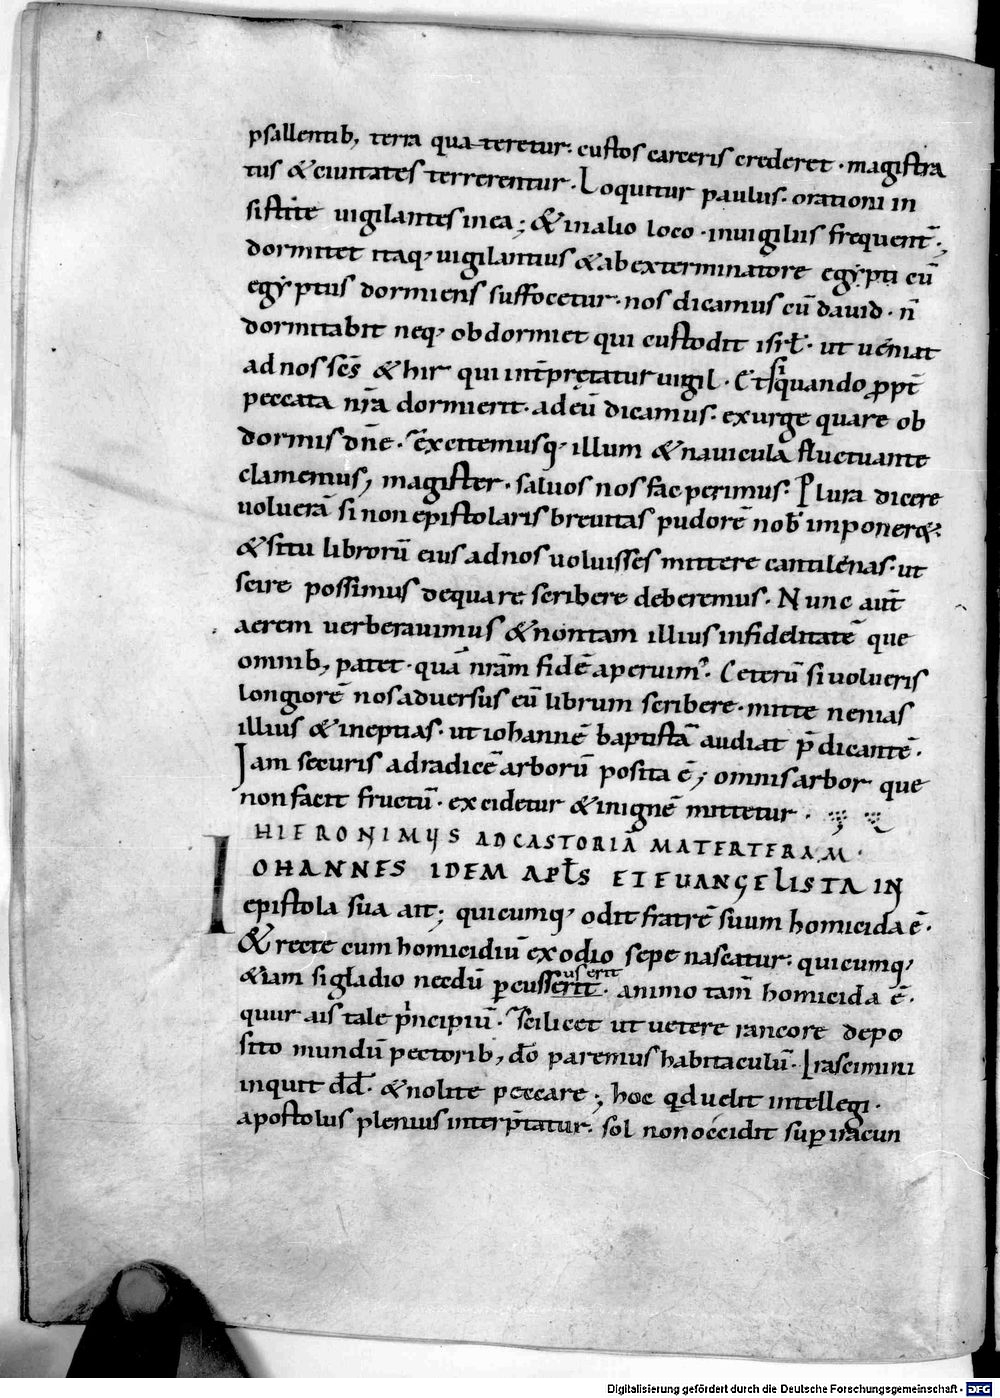 psallentib; terra quateretur. custos carceris crederet. magistra
tus & ciuitates terrerentur. Loquitur paulus. orationi in
sistite uigilantes in ea; & in alio loco. in uigiliis frequent̄.
dormitet itaq; uigilantius & ab exterminatore egypti cū
egyptiis dormiens suffocetur. nos dicamus cū dauid. n̄
dormitabit neq; obdormiet qui custodit isrł. ut ueniat
ad nos sc̄s & hir qui int̄pretatur uigil. Et siquando ꝓpt̄
peccata nr̄a dormierit. ad eū dicamus. exurge quare ob
dormis dn̄e. Excitemusq; illum & nauicula fluctuante
clamemus; magister. saluos nos fac perimus. Plura dicere
uoluerā si non epistolaris breuitas pudorē nob imponer&.
& si tu librorū eius ad nos uoluisses mittere cantilenas. ut
scire possimus de quare scribere deberemus. Nunc aut̄
aerem uerberauimus & non tam illius infidelitatē que
omnib; patet. quā nr̄am fidē aperuim⁹. Ceterū si uolueris
longiorē nos aduersus eū librum scribere. mitte nenias
illius & ineptias. ut iohannē baptistā audiat p̄dicantē.
Iam securis ad radicē arborū posita ē; omnis arbor que
non facit fructū. excidetur & in ignē mittetur.
HIERONIMYS AD CASTORIĀ MATERTERAM.
IOHANNES IDEM APŁS ET EUANGELISTA IN
epistola sua ait; quicumq; odit fratrē suum homicida ē.
& recte cum homicidiū ex odio sepe nascatur. quicumq;
& iam si gladio necdū ꝑcusserit. animo tam̄ homicida ē.
userit
quur ais tale p̄ncipiū. Scilicet ut uetere rancore depo
sito mundū pectorib; dō paremus habitaculū. Irascimini
inquit dd̄. & nolite peccare; hoc qd uelit intellegi.
apostolus plenius interp̄tatur. sol non occidit suꝑ iracun
Digitalisierung gefördert durch die Deutsche Forschungsgemeinschaft - DFG